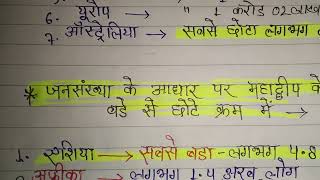 6. यूरोप — " 1 करोड 02 लाख
7. ऑस्ट्रेलिया — सबसे छोटा लगभग
* जनसंख्या के आधार पर महाद्वीप के
बडे से छोटे क्रम में →
1. एशिया → सबसे बडा - लगभग 4.8
अफ्रीका → लगभग 1.4 अरब लोग